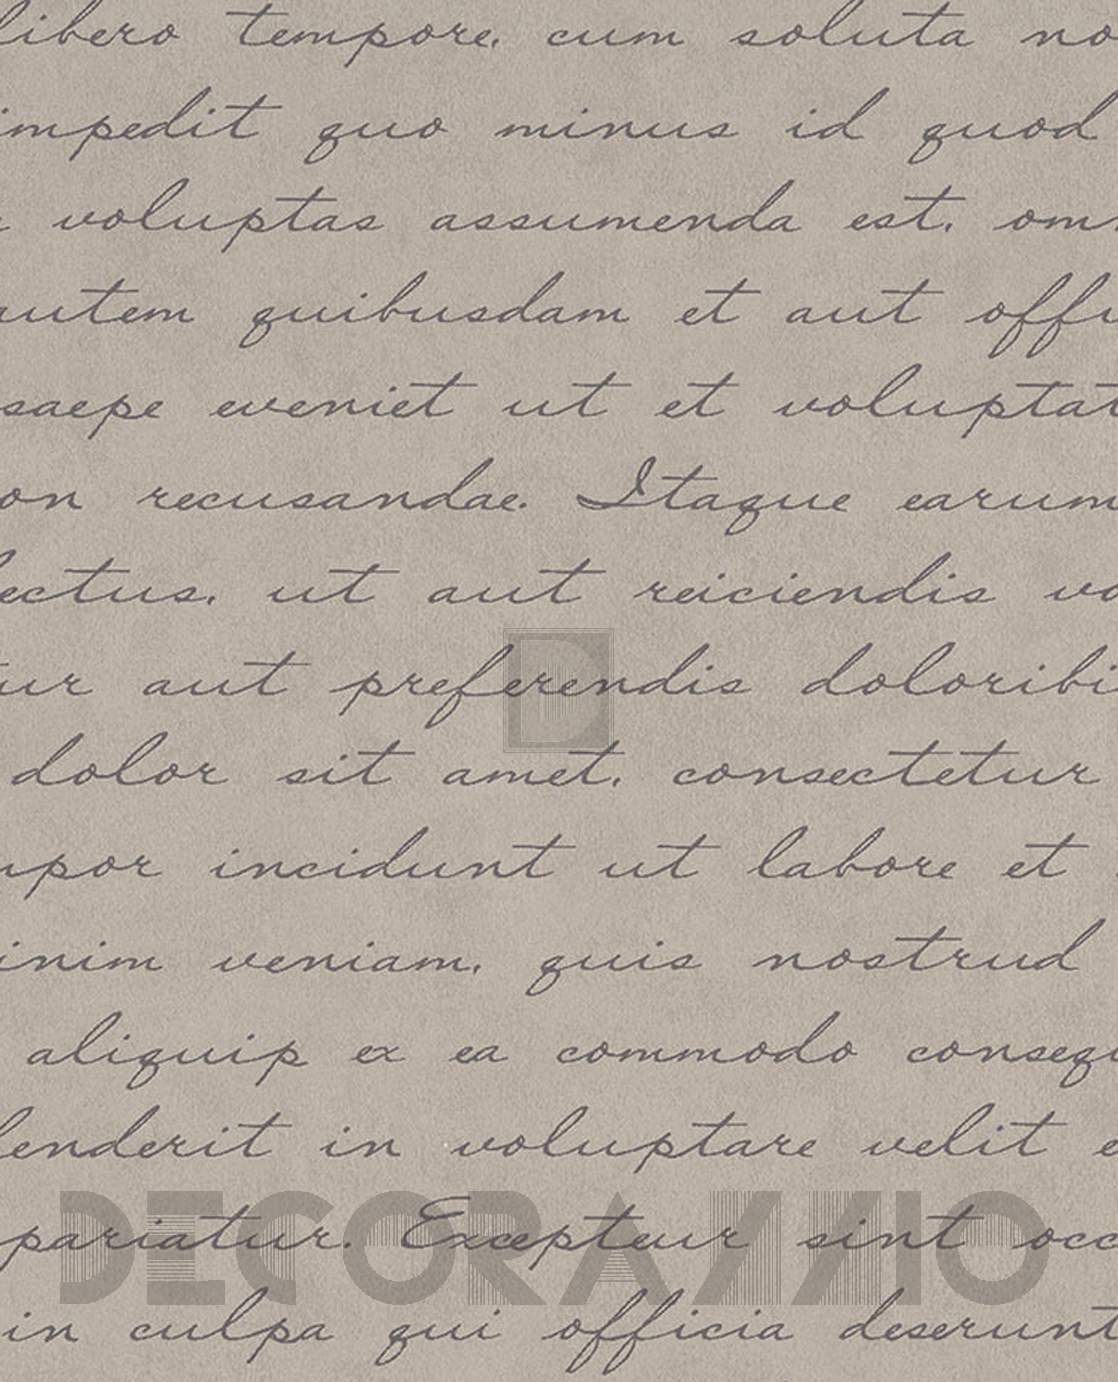 libero tempore, cum soluta no
impedit quo minus id quod
voluptas assumenda est, om
autem quibusdam et aut offi
saepe eveniet ut et voluptat
on recusandae. Itaque earum
lectus, ut aut reiciendis vo
tur aut preferendis doloribi
dolor sit amet, consectetur
mpor incididunt ut labore et
inim veniam, quis nostrud
aliquip ex ea commodo consequ
henderit in voluptare velit e
pariatur. Excepteur sint occ
DECORAMMO
in culpa qui officia deserunt